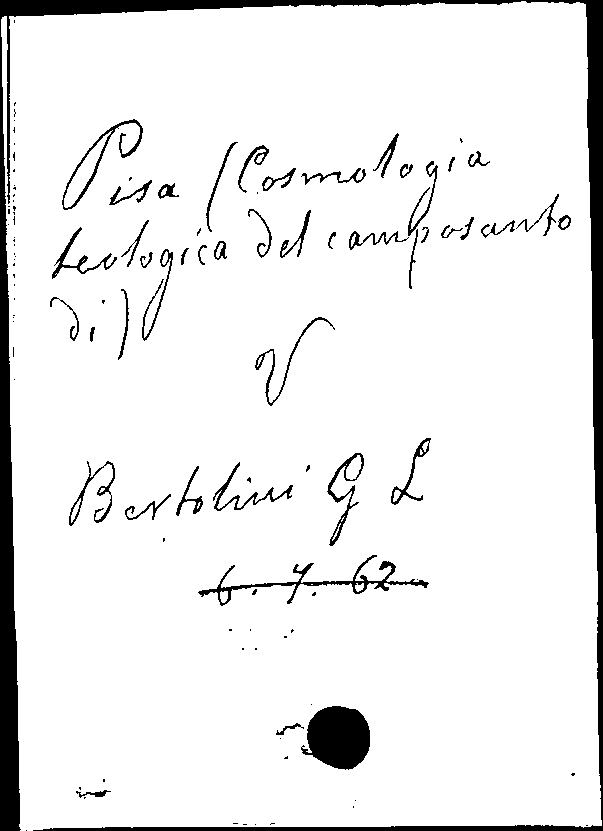 Pisa (Cosmologia
teologica del camposanto
di)
V
Bertolini G L
6. 7. 62